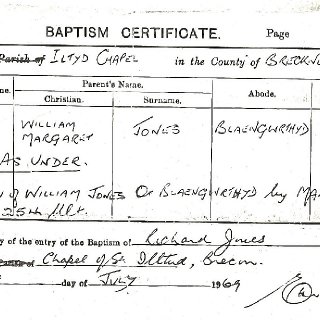 BAPTISM CERTIFICATE. Page
Parish of ILTYD CHAPEL in the County of BRECKN
ne. Parent's Name. Abode.
Christian. Surname.
WILLIAM JONES BLAENGWRTHYD
MARGARET
AS UNDER.
of WILLIAM JONES OF BLAENGWRTHYD by MA
25th Ult.
y of the entry of the Baptism of Richard Jones
Parish of Chapel of St. Illtud, Brecon.
day of JULY 1969